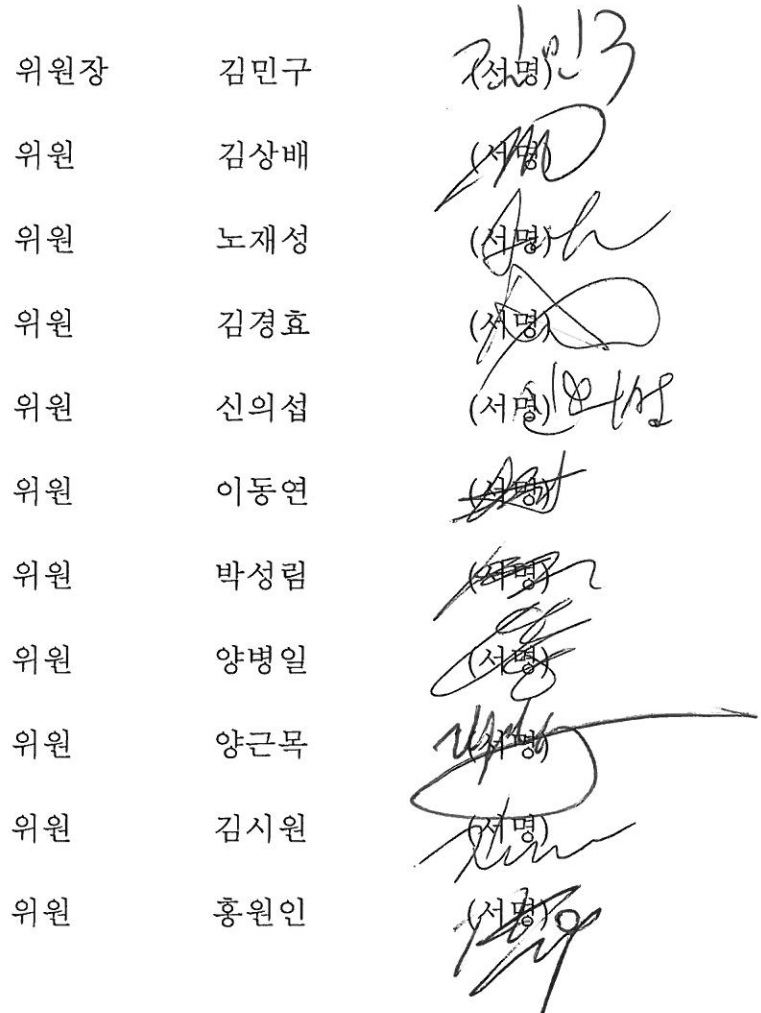 위원장 김민구 (서명) 김민구
위원 김상배 (서명)
위원 노재성 (서명)
위원 김경효 (서명)
위원 신의섭 (서명) 신의섭
위원 이동연 (서명)
위원 박성림 (서명)
위원 양병일 (서명)
위원 양근목 (서명)
위원 김시원 (서명)
위원 홍원인 (서명)